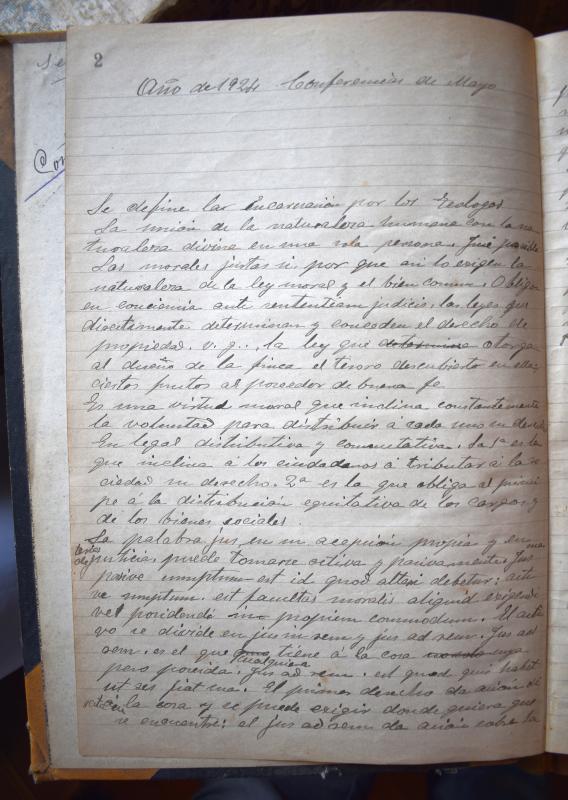 2
Año de 1924 Conferencias de Mayo
Se define la Encarnación por los Teólogos
La unión de la naturaleza humana con la na
turaleza divina en una sola persona. Fué posible
Las morales justas si, por que asi lo exigen la
naturaleza de la ley moral y el bien comun. Obligan
en conciencia ante sententiam judicis las leyes que
directamente determinan y conceden el derecho de
propiedad. v. g., la ley que determina otorga
al dueño de la finca el tesoro descubierto en ella;
ciertos frutos al poseedor de buena fe
Es una virtud moral que inclina constantemente
la voluntad para distribuir á cada uno su derecho
En legal distributiva y conmutativa. La 1ª es la
que inclina á los ciudadanos á tributar á la so
ciedad su derecho. 2ª es la que obliga al princi
pe á la distribución equitativa de los cargos y
de los bienes sociales.
La palabra jus, en su acepción propia y en
justicia, puede tomarse activa y pasivamente. Jus
pasive sumptum est id quod alteri debetur: acti
ve sumptum est facultas moralis aliquid exigendi
vel posidendi in propium commodum. El acti
vo se divide en jus in rem y jus ad rem. Jus in
rem. es el que tiene á la cosa suya
cualquiera
pero poseida. Jus ad rem. est quod quis habet
ut res fiat sua. El primer derecho da acción
á la cosa y se puede exigir donde quiera que
se encuentre: el jus ad rem da acción sobre la